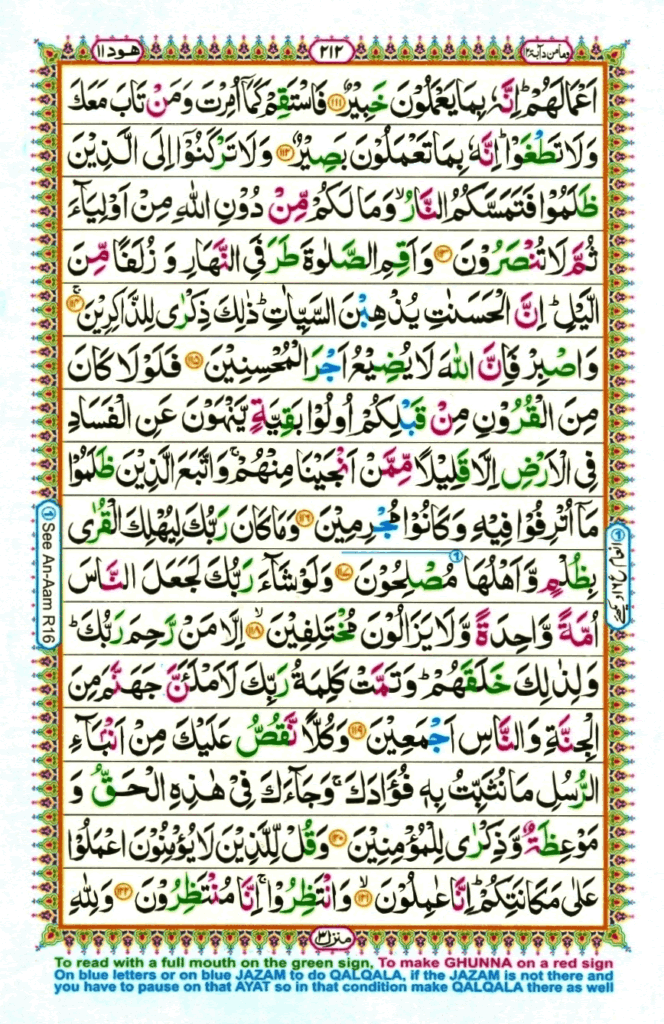 ومامن دآبة ١٢
٢١٢
هود ١١
اَعْمَالَهُمْ ؕ اِنَّهٗ بِمَا يَعْمَلُوْنَ خَبِيْرٌ ۝١١١ فَاسْتَقِمْ كَمَاۤ اُمِرْتَ وَمَنْ تَابَ مَعَكَ
وَلَا تَطْغَوْا ؕ اِنَّهٗ بِمَا تَعْمَلُوْنَ بَصِيْرٌ ۝١١٢ وَلَا تَرْكَنُوْۤا اِلَى الَّذِيْنَ
ظَلَمُوْا فَتَمَسَّكُمُ النَّارُ ۙ وَمَا لَكُمْ مِّنْ دُوْنِ اللّٰهِ مِنْ اَوْلِيَآءَ
ثُمَّ لَا تُنْصَرُوْنَ ۝١١٣ وَاَقِمِ الصَّلٰوةَ طَرَفَيِ النَّهَارِ وَ زُلَفًا مِّنَ
الَّيْلِ ؕ اِنَّ الْحَسَنٰتِ يُذْهِبْنَ السَّيِّاٰتِ ؕ ذٰلِكَ ذِكْرٰى لِلذَّاكِرِيْنَ ۚ۝١١٤
وَاصْبِرْ فَاِنَّ اللّٰهَ لَا يُضِيْعُ اَجْرَ الْمُحْسِنِيْنَ ۝١١٥ فَلَوْلَا كَانَ
مِنَ الْقُرُوْنِ مِنْ قَبْلِكُمْ اُولُوْا بَقِيَّةٍ يَّنْهَوْنَ عَنِ الْفَسَادِ
فِى الْاَرْضِ اِلَّا قَلِيْلًا مِّمَّنْ اَنْجَيْنَا مِنْهُمْ ۚ وَاتَّبَعَ الَّذِيْنَ ظَلَمُوْا
مَاۤ اُتْرِفُوْا فِيْهِ وَكَانُوْا مُجْرِمِيْنَ ۝١١٦ وَمَا كَانَ رَبُّكَ لِيُهْلِكَ الْقُرٰى
بِظُلْمٍ وَّاَهْلُهَا مُصْلِحُوْنَ ۝١١٧ وَلَوْ شَآءَ رَبُّكَ لَجَعَلَ النَّاسَ
اُمَّةً وَّاحِدَةً وَّلَا يَزَالُوْنَ مُخْتَلِفِيْنَ ۙ۝١١٨ اِلَّا مَنْ رَّحِمَ رَبُّكَ ؕ
وَلِذٰلِكَ خَلَقَهُمْ ؕ وَتَمَّتْ كَلِمَةُ رَبِّكَ لَاَمْلَئَنَّ جَهَنَّمَ مِنَ
الْجِنَّةِ وَالنَّاسِ اَجْمَعِيْنَ ۝١١٩ وَكُلًّا نَّقُصُّ عَلَيْكَ مِنْ اَنْۢبَآءِ
الرُّسُلِ مَا نُثَبِّتُ بِهٖ فُؤَادَكَ ۚ وَجَآءَكَ فِىْ هٰذِهِ الْحَقُّ وَ
مَوْعِظَةٌ وَّذِكْرٰى لِلْمُؤْمِنِيْنَ ۝١٢٠ وَقُلْ لِّلَّذِيْنَ لَا يُؤْمِنُوْنَ اعْمَلُوْا
عَلٰى مَكَانَتِكُمْ ؕ اِنَّا عٰمِلُوْنَ ۙ۝١٢١ وَانْتَظِرُوْا ۚ اِنَّا مُنْتَظِرُوْنَ ۝١٢٢ وَلِلّٰهِ
① See An-Aam R16
① انعام ع ١٦ دیکھئے
منزل ٣
To read with a full mouth on the green sign, To make GHUNNA on a red sign
On blue letters or on blue JAZAM to do QALQALA, if the JAZAM is not there and
you have to pause on that AYAT so in that condition make QALQALA there as well